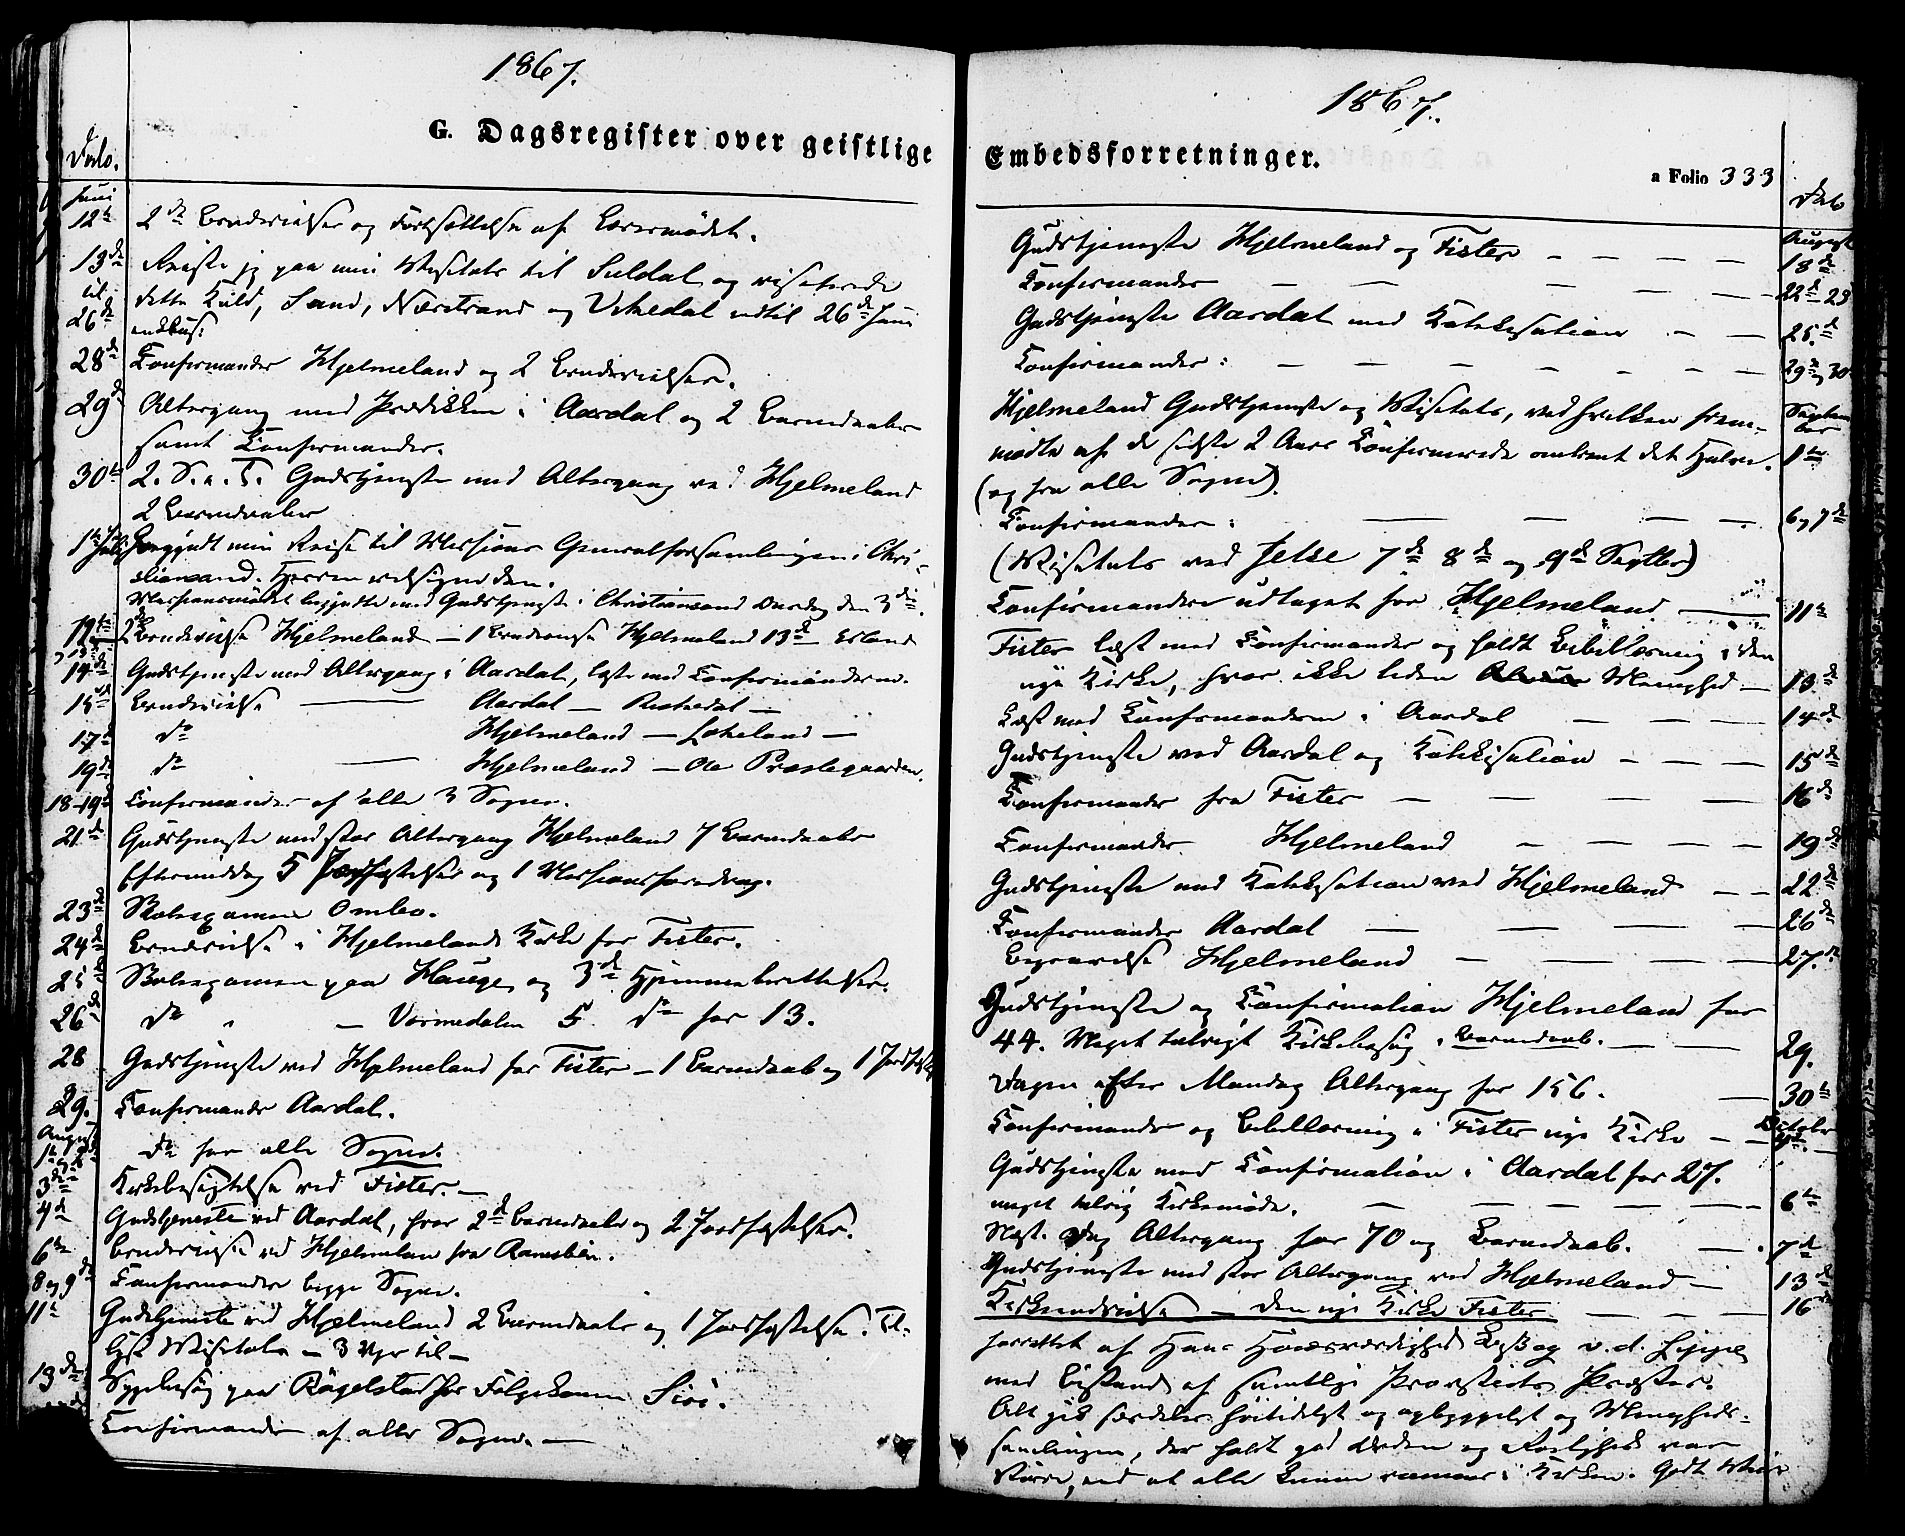 1867.
G. Dagsregister over geistlige
Dato.
Juni
12te 2de Brudevielser og Fortsættelse af Læremødet.
13de Reiste jeg paa min Visitats til Suldal og visiterede
til dette Kald, Sand, Nærstrand og Vikedal indtil 26de Juni
26de inclus:
28de Confirmander Hjelmeland og 2 Brudevielser.
29de Altergang med Prædiken i Aardal og 2 Barnedaabe
samt Confirmander.
30te 2. S. e. T. Gudstjeneste med Altergang ved Hjelmeland
2 Barnedaabe
1te Juli Begyndt min Reise til Missions Generalforsamlingen i Chri-
stiansand. Herren velsigne den.
Missionsmødet begyndte med Gudstjeneste i Christiansand Onsdag den 3die.
12te 2de Brudevielse Hjelmeland – 1 Brudevielse Hjelmeland 13de Erland
14de Gudstjeneste med Altergang i Aardal, læste med Confirmanderne.
15de Brudevielse — Aardal – Riskedal –
17de do Hjelmeland – Lekeland –
19de do — Hjelmeland – Ola Præstegaarden.
18-19de Confirmander af alle 3 Sogne.
21de Gudstjeneste med stor Altergang Hjelmeland 7 Barnedaabe
Eftermiddag 5 Jordfæstelser og 1 Missionsforedrag.
23de Skoleexamen Ombo.
24de Brudevielse i Hjelmelands Kirke for Fister.
25de Skoleexamen paa Hauge og 3de Hjemmeberettelser.
26de do – Vormedalen 5 do for 13.
28 Gudstjeneste ved Hjelmeland for Fister – 1 Barnedaab og 1 Jordfæst
29. Confirmander Aardal.
August
1te og 2de do for alle Sogne.
3die Kirkebesigtelse ved Fister. –
4de Gudstjeneste ved Aardal, hvor 2de Barnedaabe og 2 Jordfæstelser.
6te Brudevielse ved Hjelmeland fra
8 og 9de Confirmander begge Sogne.
11te Gudstjeneste ved Hjelmeland 2 Barnedaabe og 1 Jordfæstelse. Til-
lyst Visitats – 3 Uger til –
13de Sygebesøg paa Rägelstad hos Følgekonen Siri.
Confirmander af alle Sogne. –
1867.
Embedsforretninger.
a Folio 333
Dato
Gudstjeneste Hjelmeland og Fister – – – – August 18de
Confirmander – – – – 22de 23
Gudstjeneste Aardal med Katekisation – – 25de
Confirmander: – – – – – – 29de og 30
Hjelmeland Gudstjeneste og Visitats, ved hvilken frem- Septem
mødte af de sidste 2 Aars Confirmerede omtrent det Halve. ber 1te
(og fra alle Sogne).
Confirmander: – – – – 6 og 7de
(Visitats ved Jelse 7de 8de og 9de Septbr)
Confirmandere udtaget for Hjelmeland — 11te
Fister læst med Confirmander og holdt Bibellæsning i den
nye Kirke, hvor ikke liden Menighed – 13de
Læst med Confirmanderne i Aardal – – – 14de
Gudstjeneste ved Aardal og Katekisation – – – 15de
Confirmander fra Fister – – – – 16de
Confirmander Hjelmeland – – – – 19de
Gudstjeneste med Katekisation ved Hjelmeland – – 22de
Confirmander Aardal – – – – 26de
Begravelse Hjelmeland – – – – 27de
Gudstjeneste og Confirmation Hjelmeland for
44. Meget talrigt Kirkebesøg. Barnedaab. – – 29.
Dagen efter Mandag Altergang for 156. – 30te
Confirmander og Bibellæsning i Fister nye Kirke – – Octobr
Gudstjeneste med Confirmation i Aardal for 27.
meget talrig Kirkemøde. – – – – – 6te
Næst. Dag Altergang for 70 og Barnedaab. – 7de
Gudstjeneste med stor Altergang ved Hjelmeland – 13de
Kirkeindvielse – Den nye Kirke Fister – – – 16de
forrettet af Hans Høiærværdighed Bisp v. d. Lippe
med Bistand af samtlige Provstiets Præster.
Alt gik særdeles høitideligt og opbyggeligt og Menigheds-
samlingen, der holdt god Orden og Rolighed var
større, end at alle kunne rummes i Kirken. Godt Veir